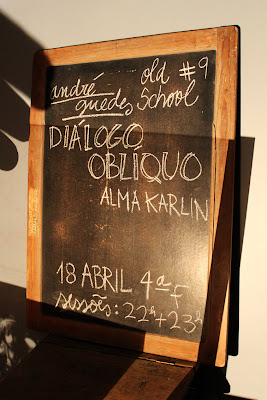 andré old #9
guedes School
DIÁLOGO
OBLIQUO
ALMA KARLIN
18 ABRIL 4ª F
sessões: 22h + 23h